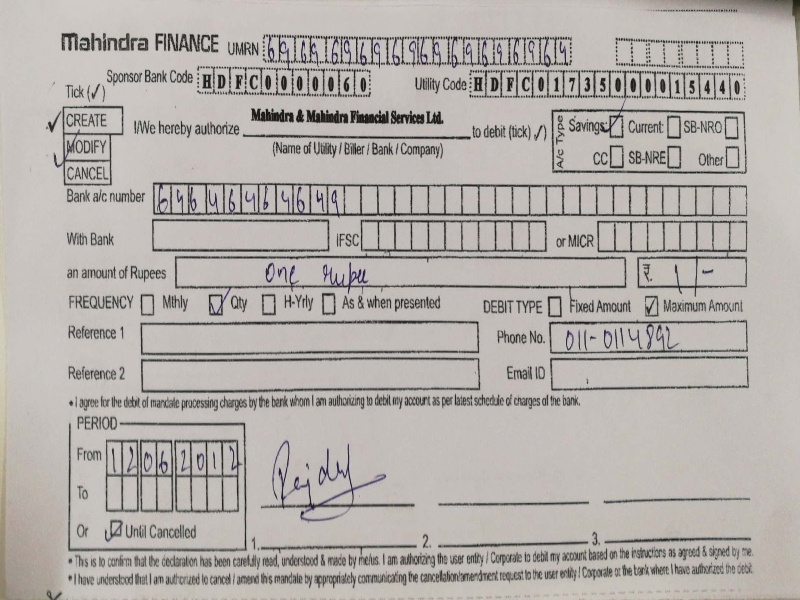 Mahindra FINANCE UMRN 6969696969696969 64
Sponsor Bank Code HDFC0000060 Utility Code HDFC01735000015440
Tick (✓)
CREATE
MODIFY
CANCEL
I/We hereby authorize Mahindra & Mahindra Financial Services Ltd. to debit (tick) ✓)
(Name of Utility / Biller / Bank / Company)
A/c Type Savings Current SB-NRO
CC SB-NRE Other
Bank a/c number 64646464649
With Bank IFSC or MICR
an amount of Rupees One rupee ₹ 1/-
FREQUENCY Mthly Qty H-Yrly As & when presented DEBIT TYPE Fixed Amount Maximum Amount
Reference 1 Phone No. 011-0114892
Reference 2 Email ID
• I agree for the debit of mandate processing charges by the bank whom I am authorizing to debit my account as per latest schedule of charges of the bank.
PERIOD
From 12062012
To
Or Until Cancelled
1. 2. 3.
• This is to confirm that the declaration has been carefully read, understood & made by me/us. I am authorizing the user entity / Corporate to debit my account based on the instructions as agreed & signed by me.
• I have understood that I am authorized to cancel / amend this mandate by appropriately communicating the cancellation/amendment request to the user entity / Corporate or the bank where I have authorized the debit.